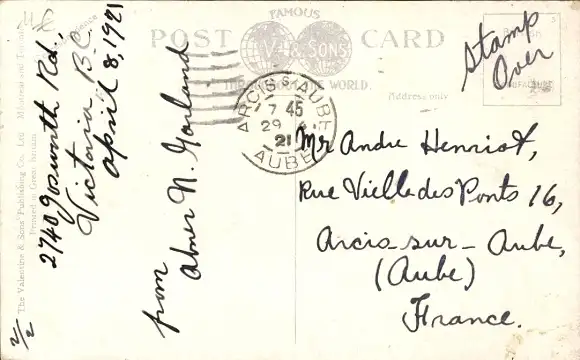 FAMOUS
POST CARD
& SONS
THE WORLD.
Address only
Stamp
Over
2740 Gosworth Rd.,
Victoria B.C.
April 8, 1921
from
Abner N. Gorland
The Valentine & Sons' Publishing Co. Ltd. Montreal and Toronto
Printed in Great Britain
ARCIS-S-AUBE
7 45
29
21
AUBE
Mr Andre Henriot,
Rue Vielle des Ponts 16,
Arcis-sur-Aube,
(Aube)
France.
2/2